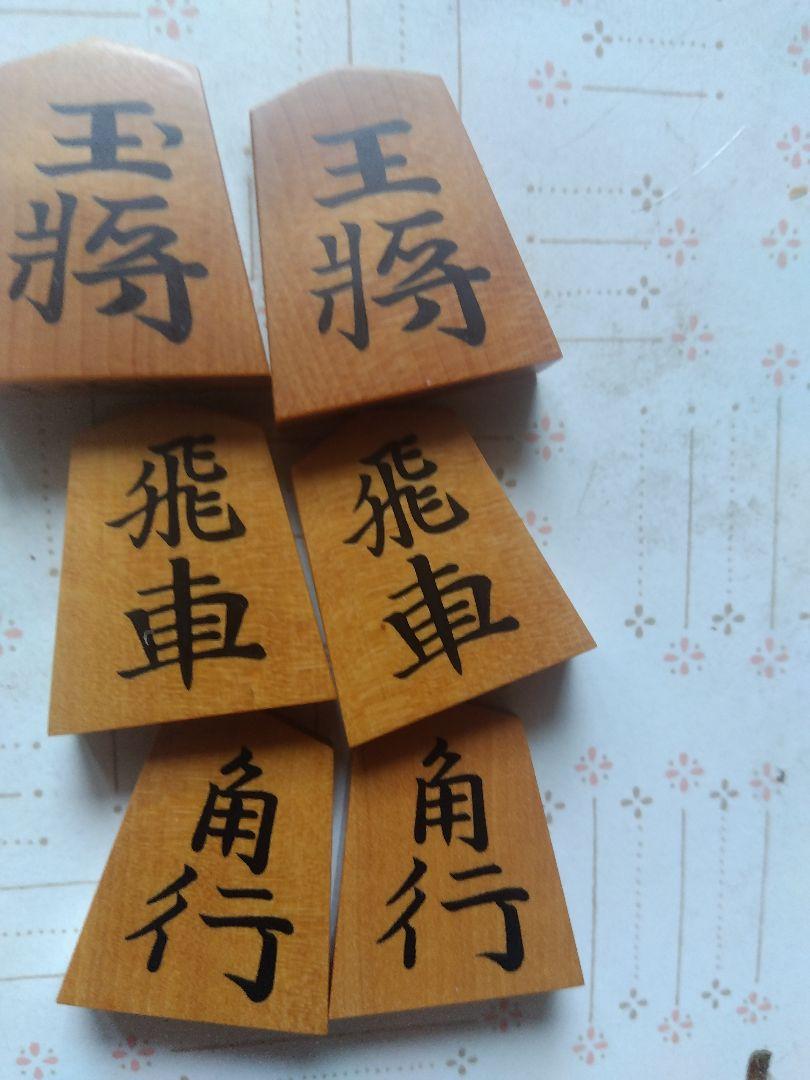 玉將
王將
飛車
飛車
角行
角行